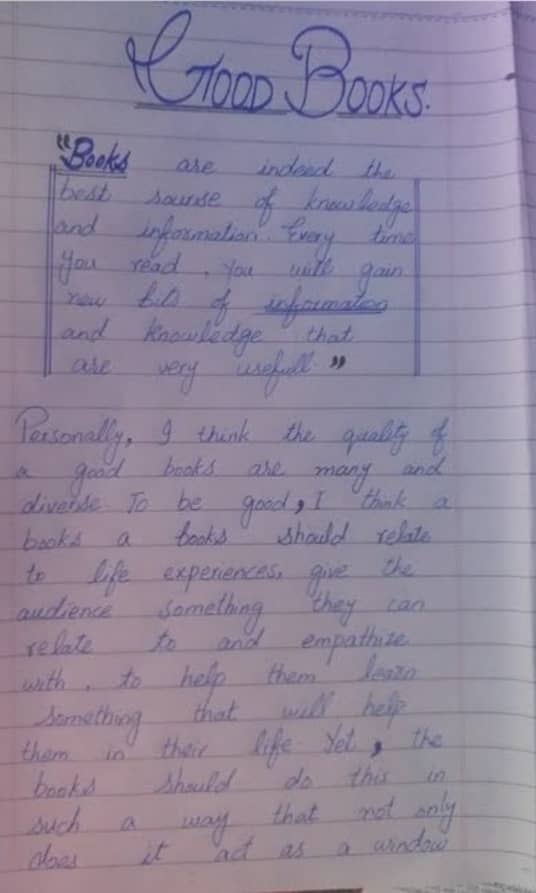 GOOD BOOKS.
"Books are indeed the
best sourse of knowledge
and information. Every time
you read, you will gain
new bits of information
and knowledge that
are very usefull"
Personally, I think the quality of
a good books are many and
diverse. To be good, I think a
books a books should relate
to life experiences, give the
audience something they can
relate to and empathize
with, to help them learn
something that will help
them in their life Yet, the
books should do this in
such a way that not only
does it act as a window